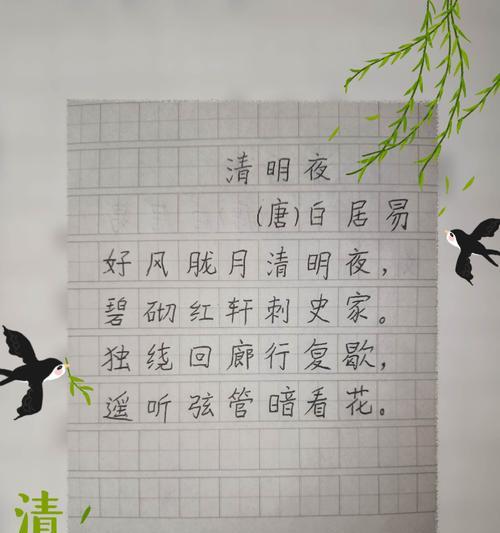 清明夜
(唐)白居易
好风胧月清明夜,
碧砌红轩刺史家。
独绕回廊行复歇,
遥听弦管暗看花。
清